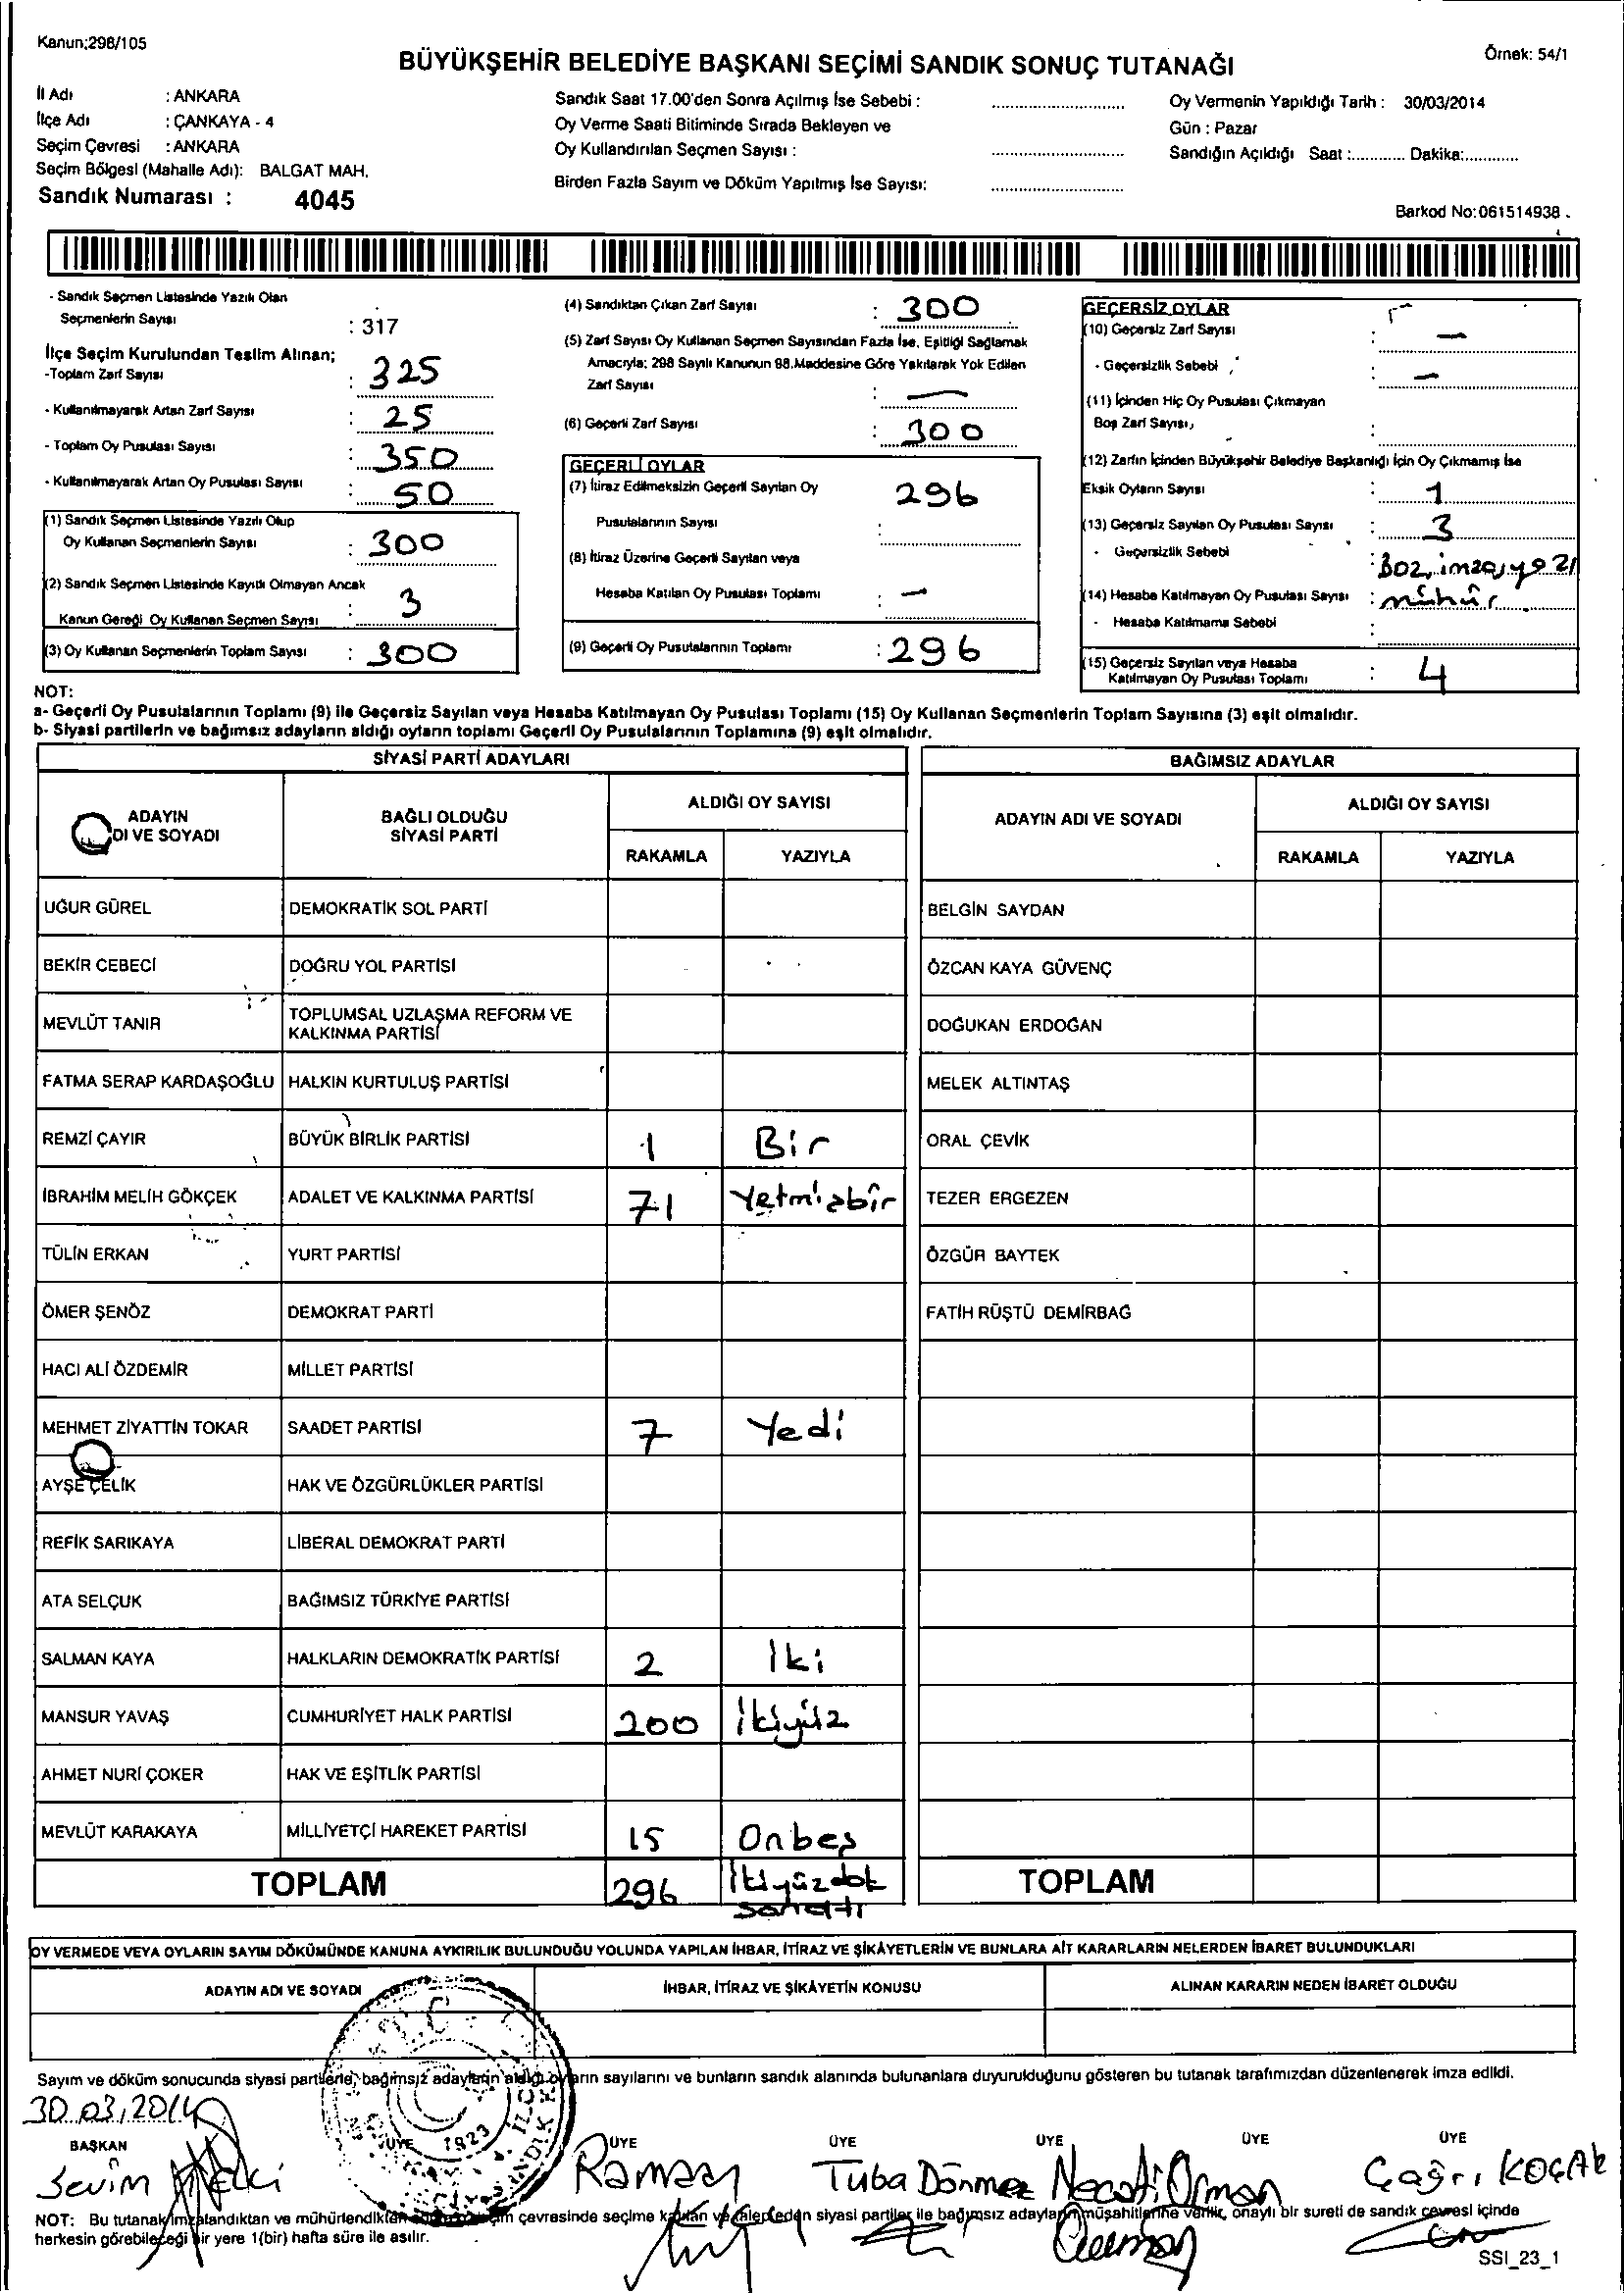 Kanun;298/105
Örnek: 54/1
BÜYÜKŞEHİR BELEDİYE BAŞKANI SEÇİMİ SANDIK SONUÇ TUTANAĞI
İl Adı : ANKARA
İlçe Adı : ÇANKAYA - 4
Seçim Çevresi : ANKARA
Seçim Bölgesi (Mahalle Adı): BALGAT MAH.
Sandık Numarası : 4045
Sandık Saat 17.00'den Sonra Açılmış İse Sebebi :
Oy Verme Saati Bitiminde Sırada Bekleyen ve
Oy Kullandırılan Seçmen Sayısı :
Birden Fazla Sayım ve Döküm Yapılmış İse Sayısı:
Oy Vermenin Yapıldığı Tarih : 30/03/2014
Gün : Pazar
Sandığın Açıldığı Saat :............ Dakika:.............
Barkod No:061514938
- Sandık Seçmen Listesinde Yazılı Olan
Seçmenlerin Sayısı : 317
İlçe Seçim Kurulundan Teslim Alınan;
-Toplam Zarf Sayısı : 325
- Kullanılmayarak Artan Zarf Sayısı : 25
- Toplam Oy Pusulası Sayısı : 350
- Kullanılmayarak Artan Oy Pusulası Sayısı : 50
(1) Sandık Seçmen Listesinde Yazılı Olup
Oy Kullanan Seçmenlerin Sayısı : 300
(2) Sandık Seçmen Listesinde Kayıtlı Olmayan Ancak
Kanun Gereği Oy Kullanan Seçmen Sayısı : 3
(3) Oy Kullanan Seçmenlerin Toplam Sayısı : 300
(4) Sandıktan Çıkan Zarf Sayısı : 300
(5) Zarf Sayısı Oy Kullanan Seçmen Sayısından Fazla İse, Eşitliği Sağlamak
Amacıyla; 298 Sayılı Kanunun 98.Maddesine Göre Yakılarak Yok Edilen
Zarf Sayısı : —
(6) Geçerli Zarf Sayısı : 300
GEÇERLİ OYLAR
(7) İtiraz Edilmeksizin Geçerli Sayılan Oy
Pusulalarının Sayısı : 296
(8) İtiraz Üzerine Geçerli Sayılan veya
Hesaba Katılan Oy Pusulası Toplamı : —
(9) Geçerli Oy Pusulalarının Toplamı : 296
GEÇERSİZ OYLAR
(10) Geçersiz Zarf Sayısı : —
- Geçersizlik Sebebi : —
(11) İçinden Hiç Oy Pusulası Çıkmayan
Boş Zarf Sayısı, :
(12) Zarfın İçinden Büyükşehir Belediye Başkanlığı İçin Oy Çıkmamış İse
Eksik Oyların Sayısı : 1
(13) Geçersiz Sayılan Oy Pusulası Sayısı : 3
- Geçersizlik Sebebi : Boz, imza, yazı
(14) Hesaba Katılmayan Oy Pusulası Sayısı : mühür
- Hesaba Katılmama Sebebi :
(15) Geçersiz Sayılan veya Hesaba
Katılmayan Oy Pusulası Toplamı : 4
NOT:
a- Geçerli Oy Pusulalarının Toplamı (9) ile Geçersiz Sayılan veya Hesaba Katılmayan Oy Pusulası Toplamı (15) Oy Kullanan Seçmenlerin Toplam Sayısına (3) eşit olmalıdır.
b- Siyasi partilerin ve bağımsız adayların aldığı oyların toplamı Geçerli Oy Pusulalarının Toplamına (9) eşit olmalıdır.
SİYASİ PARTİ ADAYLARI
ADAYIN
DI VE SOYADI
BAĞLI OLDUĞU
SİYASİ PARTİ
ALDIĞI OY SAYISI
RAKAMLA YAZIYLA
UĞUR GÜREL DEMOKRATİK SOL PARTİ
BEKİR CEBECİ DOĞRU YOL PARTİSİ
MEVLÜT TANIR TOPLUMSAL UZLAŞMA REFORM VE
KALKINMA PARTİSİ
FATMA SERAP KARDAŞOĞLU HALKIN KURTULUŞ PARTİSİ
REMZİ ÇAYIR BÜYÜK BİRLİK PARTİSİ 1 Bir
İBRAHİM MELİH GÖKÇEK ADALET VE KALKINMA PARTİSİ 71 Yetmişbir
TÜLİN ERKAN YURT PARTİSİ
ÖMER ŞENÖZ DEMOKRAT PARTİ
HACI ALİ ÖZDEMİR MİLLET PARTİSİ
MEHMET ZİYATTİN TOKAR SAADET PARTİSİ 7 Yedi
AYŞE ÇELİK HAK VE ÖZGÜRLÜKLER PARTİSİ
REFİK SARIKAYA LİBERAL DEMOKRAT PARTİ
ATA SELÇUK BAĞIMSIZ TÜRKİYE PARTİSİ
SALMAN KAYA HALKLARIN DEMOKRATİK PARTİSİ 2 İki
MANSUR YAVAŞ CUMHURİYET HALK PARTİSİ 200 İkiyüz
AHMET NURİ ÇOKER HAK VE EŞİTLİK PARTİSİ
MEVLÜT KARAKAYA MİLLİYETÇİ HAREKET PARTİSİ 15 Onbeş
TOPLAM 296 İkiyüzdok
sanaltı
BAĞIMSIZ ADAYLAR
ADAYIN ADI VE SOYADI
ALDIĞI OY SAYISI
RAKAMLA YAZIYLA
BELGİN SAYDAN
ÖZCAN KAYA GÜVENÇ
DOĞUKAN ERDOĞAN
MELEK ALTINTAŞ
ORAL ÇEVİK
TEZER ERGEZEN
ÖZGÜR BAYTEK
FATİH RÜŞTÜ DEMİRBAĞ
TOPLAM
OY VERMEDE VEYA OYLARIN SAYIM DÖKÜMÜNDE KANUNA AYKIRILIK BULUNDUĞU YOLUNDA YAPILAN İHBAR, İTİRAZ VE ŞİKÂYETLERİN VE BUNLARA AİT KARARLARIN NELERDEN İBARET BULUNDUKLARI
ADAYIN ADI VE SOYADI
İHBAR, İTİRAZ VE ŞİKÂYETİN KONUSU
ALINAN KARARIN NEDEN İBARET OLDUĞU
Sayım ve döküm sonucunda siyasi partilerle, bağımsız adayların aldığı oyların sayılarını ve bunların sandık alanında bulunanlara duyurulduğunu gösteren bu tutanak tarafımızdan düzenlenerek imza edildi.
30.03.2014
BAŞKAN ÜYE ÜYE ÜYE ÜYE ÜYE ÜYE
1923
Sevim
Tuba Dönmez Necati Orman Çağrı KOÇAK
NOT: Bu tutanak imzalandıktan ve mühürlendikten çevresinde seçime katılan ve talep eden siyasi partiler ile bağımsız adayların müşahitlerine verilir, onaylı bir sureti de sandık çevresi içinde
herkesin görebileceği bir yere 1(bir) hafta süre ile asılır.
SSI_23_1